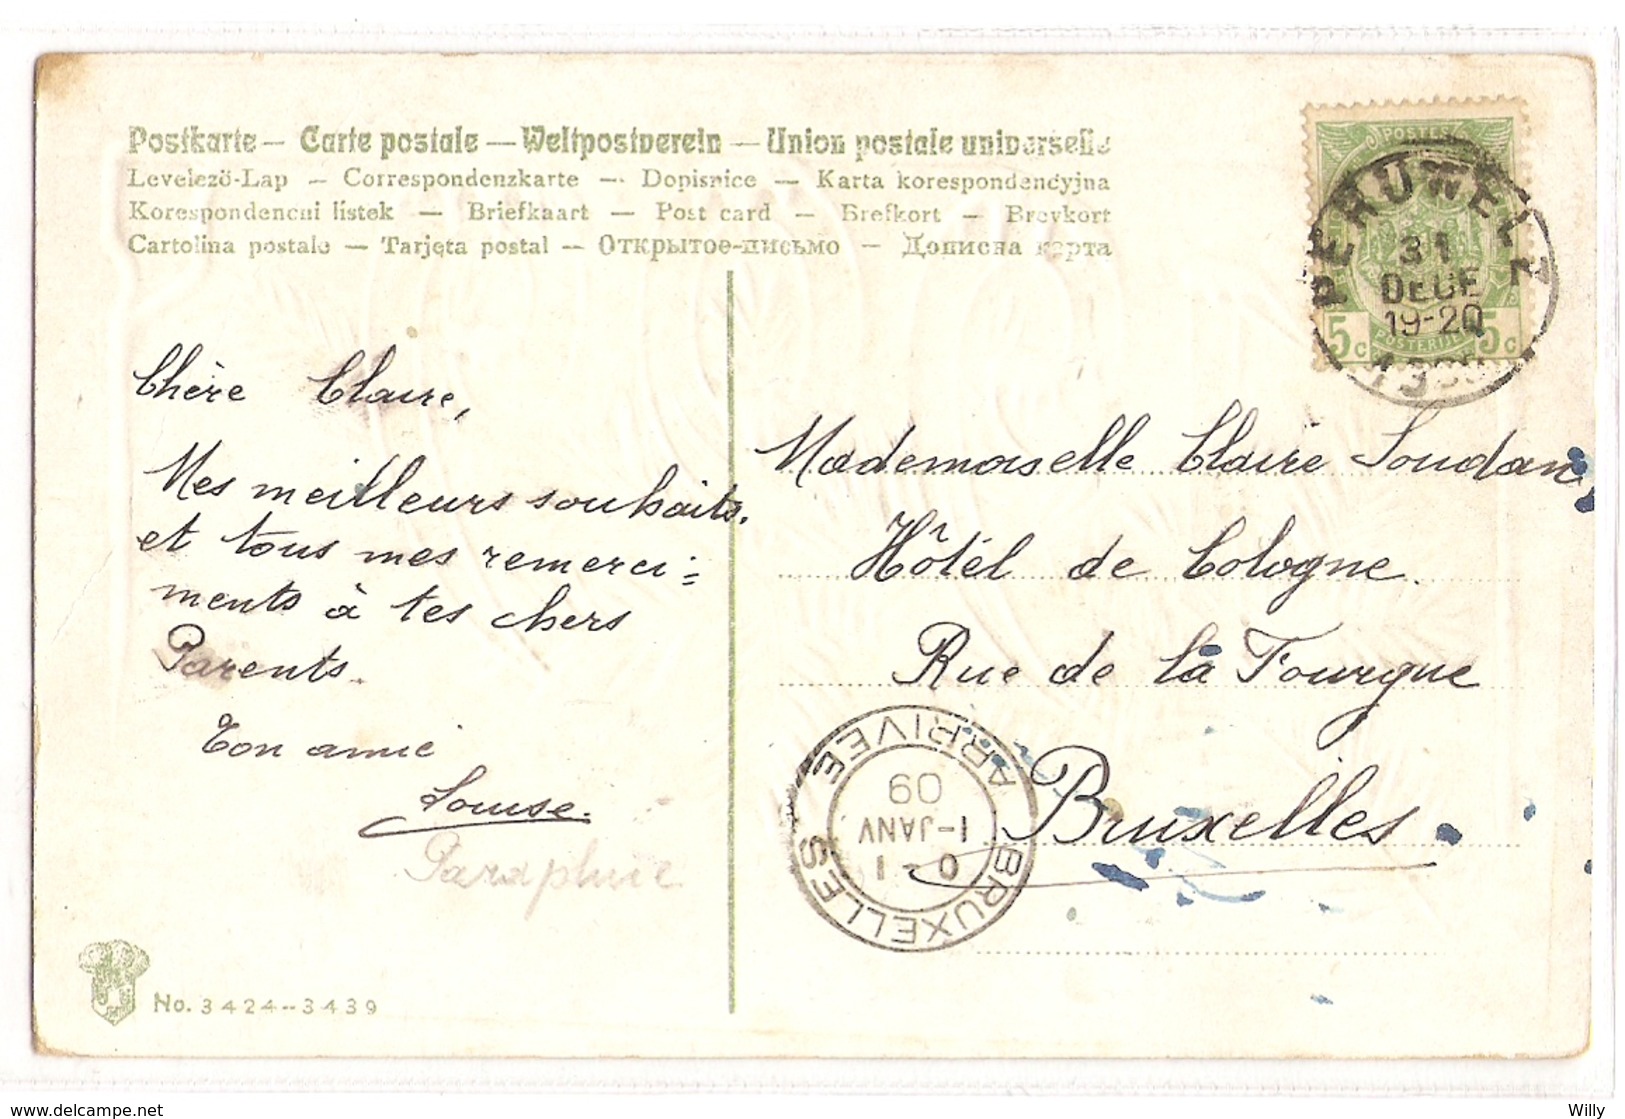 Postkarte – Carte postale – Weltpostverein – Union postale universelle
Levelező-Lap – Correspondenzkarte – Dopisnice – Karta korespondencyjna
Korespondencni listek – Briefkaart – Post card – Brefkort – Brevkort
Cartolina postale – Tarjeta postal – Открытое-письмо – Дописна карта
POSTES
5c POSTERIJEN 5c
PERUWELZ
31
DECE
19-20
Chère Claire,
Mes meilleurs souhaits.
et tous mes remerci=
ments à tes chers
Parents.
Ton amie
Louise.
Mademoiselle Claire Soudan
Hôtél de Cologne.
Rue de la Fourgue
Bruxelles
BRUXELLES ARRIVEE
0 - 1
1-JANV
09
No. 3424--3439
www.delcampe.net
Willy